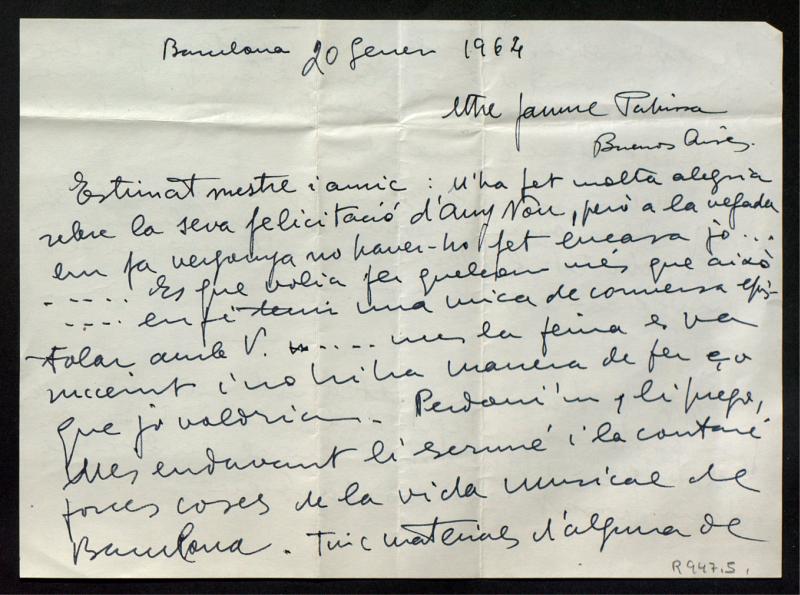 Barcelona 20 Gener 1964
Mtre Jaume Pahissa
Buenos Aires.
Estimat mestre i amic : M'ha fet molta alegria
rebre la seva felicitació d'Any Nou, però a la vegada
em fa vergonya no haver-ho fet encara jo ...
..... Es que volia fer quelcom més que això
..... en fi tenir una mica de conversa epis-
tolar amb V. ..... mes la feina es va
succeint i no hi ha manera de fer ço
que jo voldria. Perdoni'm, li prego,
Mes endavant li escriuré i la contaré
forces coses de la vida musical de
Barcelona. Tinc materials d'alguna de
R 947.5.